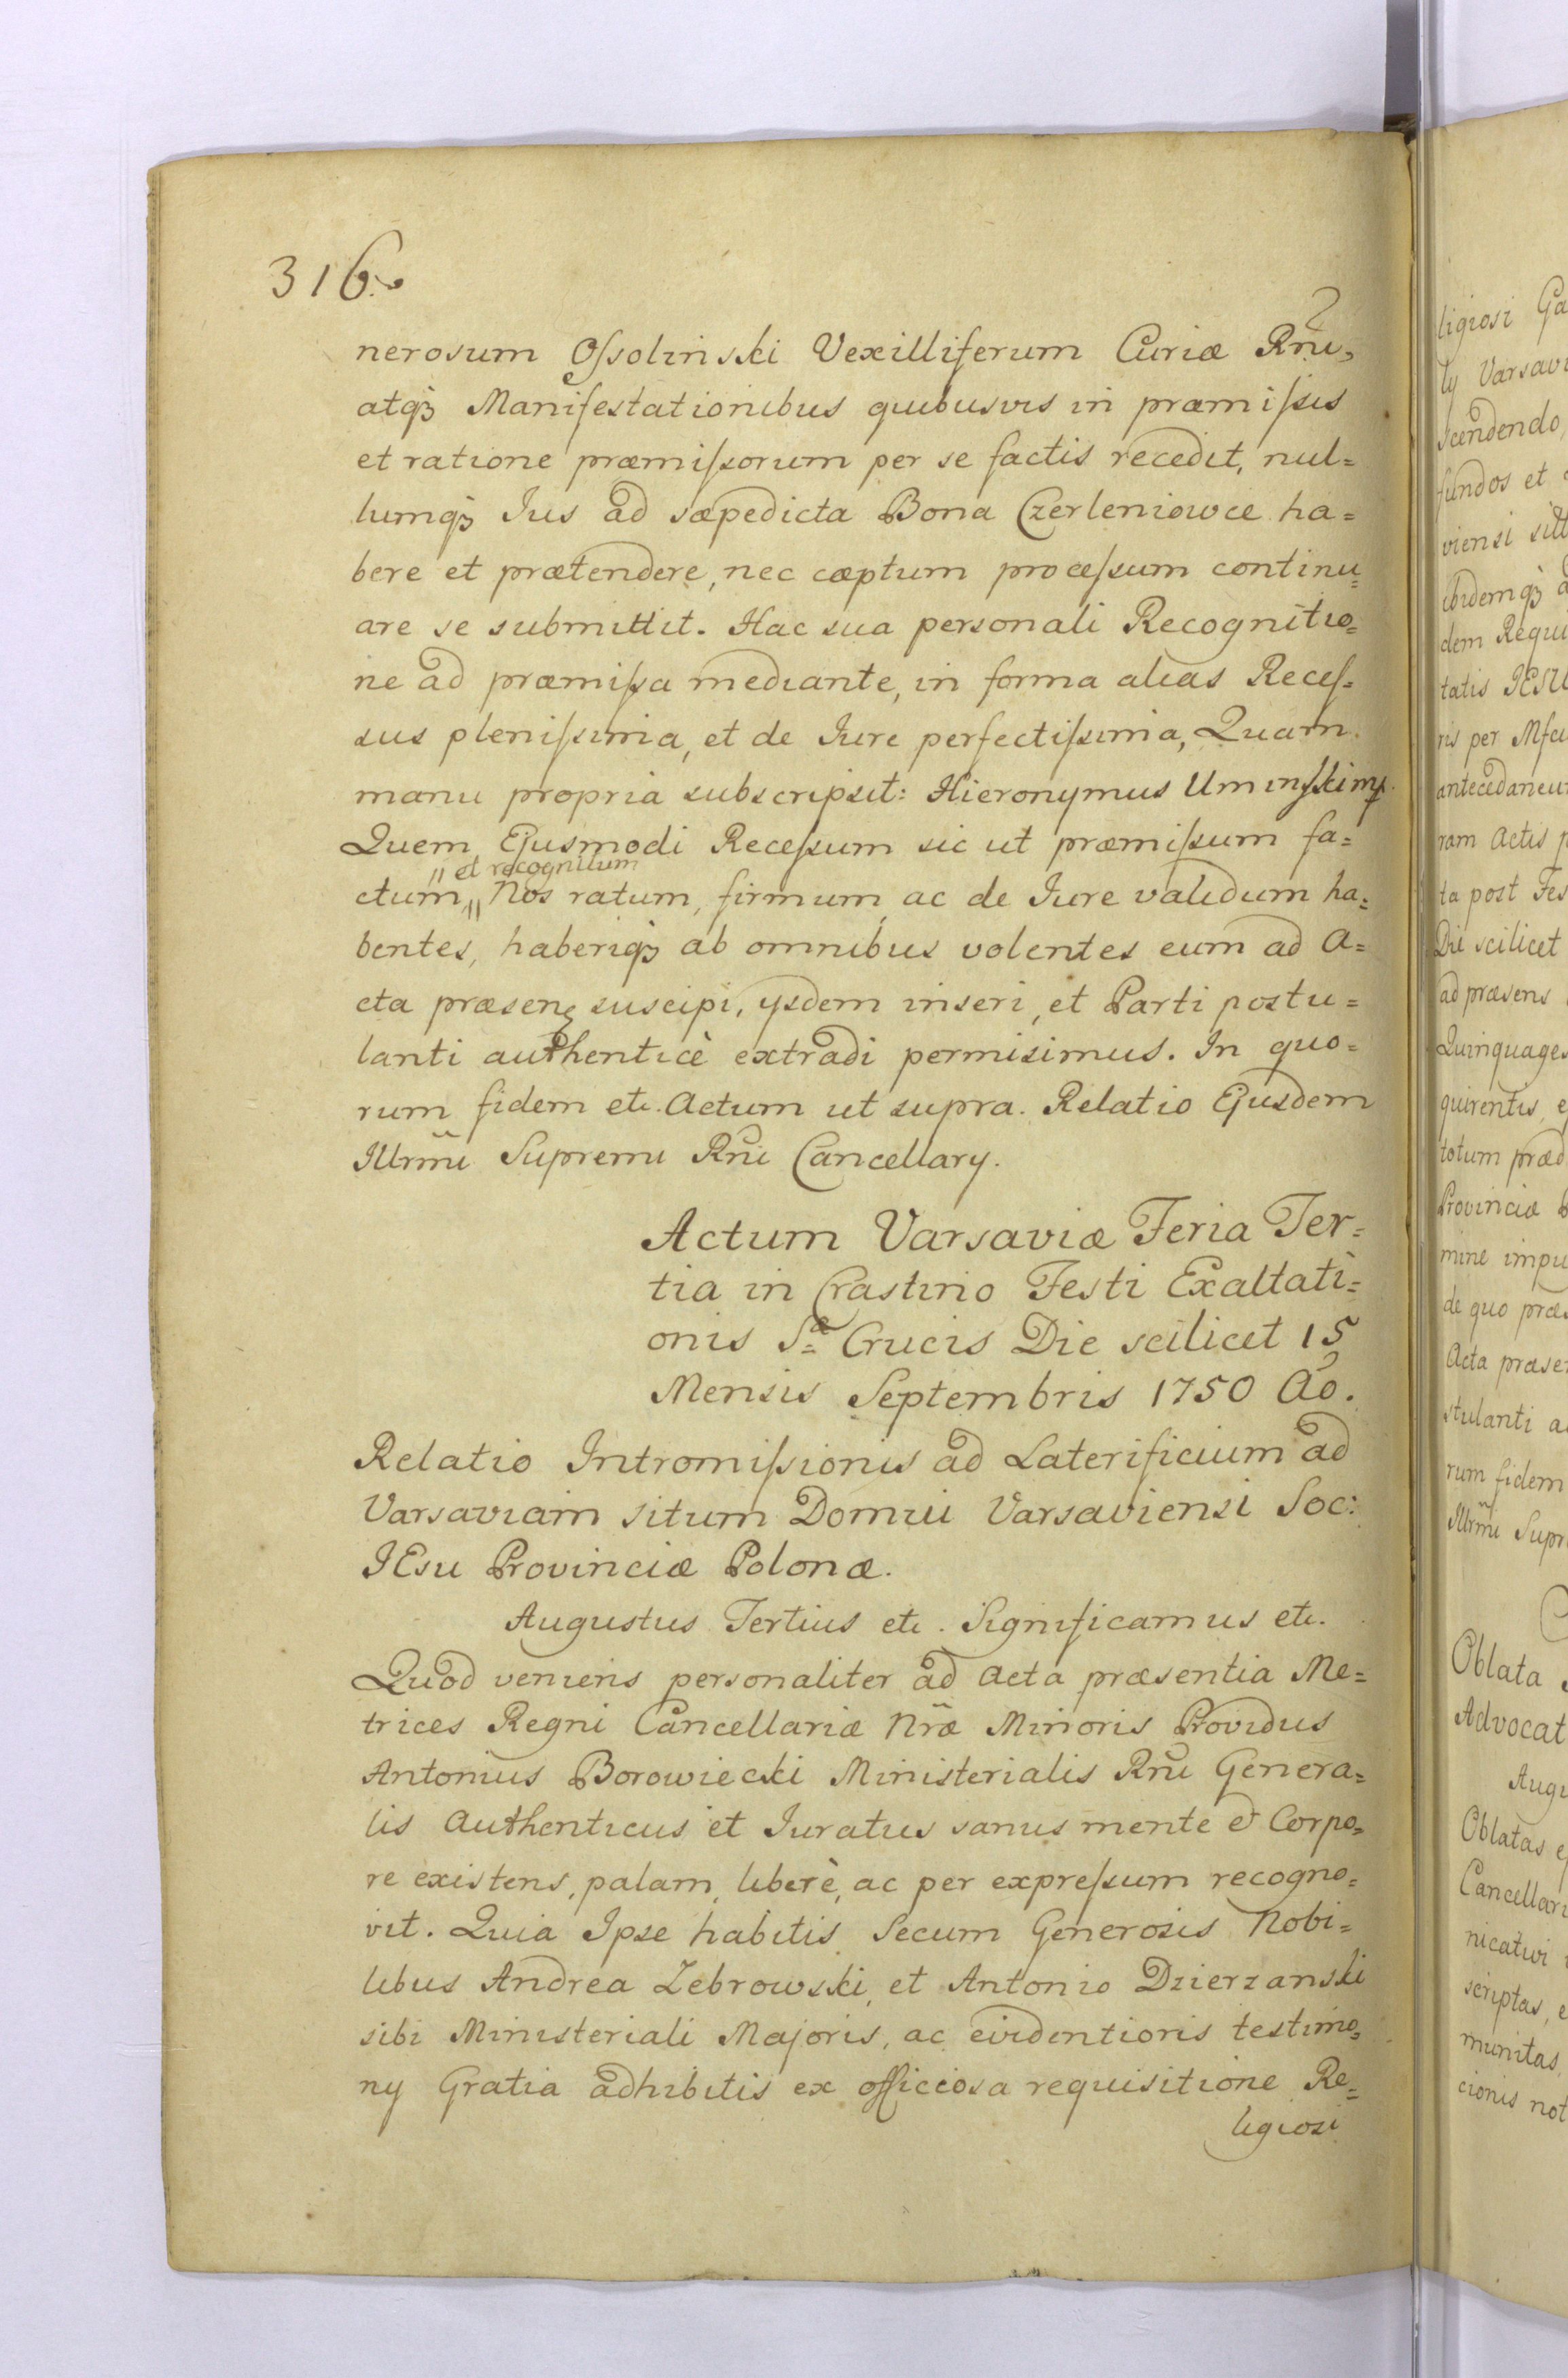 316.
nerosum Ossolinski Vexilliferum Curiæ Rñi,
atq̃ Manifestationibus quibusvis in præmissis
et ratione præmissorum per se factis recedit, nul=
lumq̃ Jus ad sæpedicta Bona Czerleniowce ha=
bere et prætendere, nec cæptum processum continu=
are se submittit. Hac sua personali Recognitio=
ne ad præmissa mediante, in forma alias Reces=
sus plenissima, et de Jure perfectissima, Quam
manu propria subscripsit: Hieronymus Uminsski mp.
Quem Ejusmodi Recessum sic ut præmissum fa=
〃 et recognitum
ctum,〃 Nos ratum, firmum, ac de Jure validum ha=
bentes, haberiq̃ ab omnibus volentes eum ad A=
cta præsen suscipi, ijsdem inseri, et Parti postu=
lanti authenticè extradi permisimus. In quo=
rum fidem etc. Actum ut supra. Relatio Ejusdem
Illrmi Supremi Rñi Cancellarij.
Actum Varsaviæ Feria Ter=
tia in Crastino Festi Exaltati=
onis Sæ Crucis Die scilicet 15
Mensis Septembris 1750 Ao.
Relatio Intromissionis ad Laterificium ad
Varsaviam situm Domui Varsaviensi Soc:
JEsu Provinciæ Polonæ.
Augustus Tertius etc. Significamus etc.
Quod veniens personaliter ad Acta præsentia Me=
trices Regni Cancellariæ Nræ Minoris Providus
Antonius Borowiecki Ministerialis Rñi Genera=
lis Authenticus et Juratus sanus mente & Corpo=
re existens, palam, liberè, ac per expressum recogno=
vit. Quia Ipse habitis Secum Generosis Nobi=
libus Andrea Zebrowski, et Antonio Dzierzanski
sibi Ministeriali Majoris, ac evidentioris testimo=
nij Gratia adhibitis ex officiosa requisitione Re=
ligiosi
ligiosi Ga
tij Varsavi
scendendo,
fundos et
viensi sit
ibidemq̃
dem Requi
tatis JESU
ris per
antecedaneu
ram Actis p
ta post Fes
Die scilicet
ad præsens
Quinquages
quirentis, e
totum præd
Provinciæ P
mine impu
de quo præs
Acta præse
stulanti a
rum fidem
Illrmi Supr
Oblata
Advocat
Augu
Oblatas
Cancellari
nicativi
scriptas, e
munitas,
cionis not